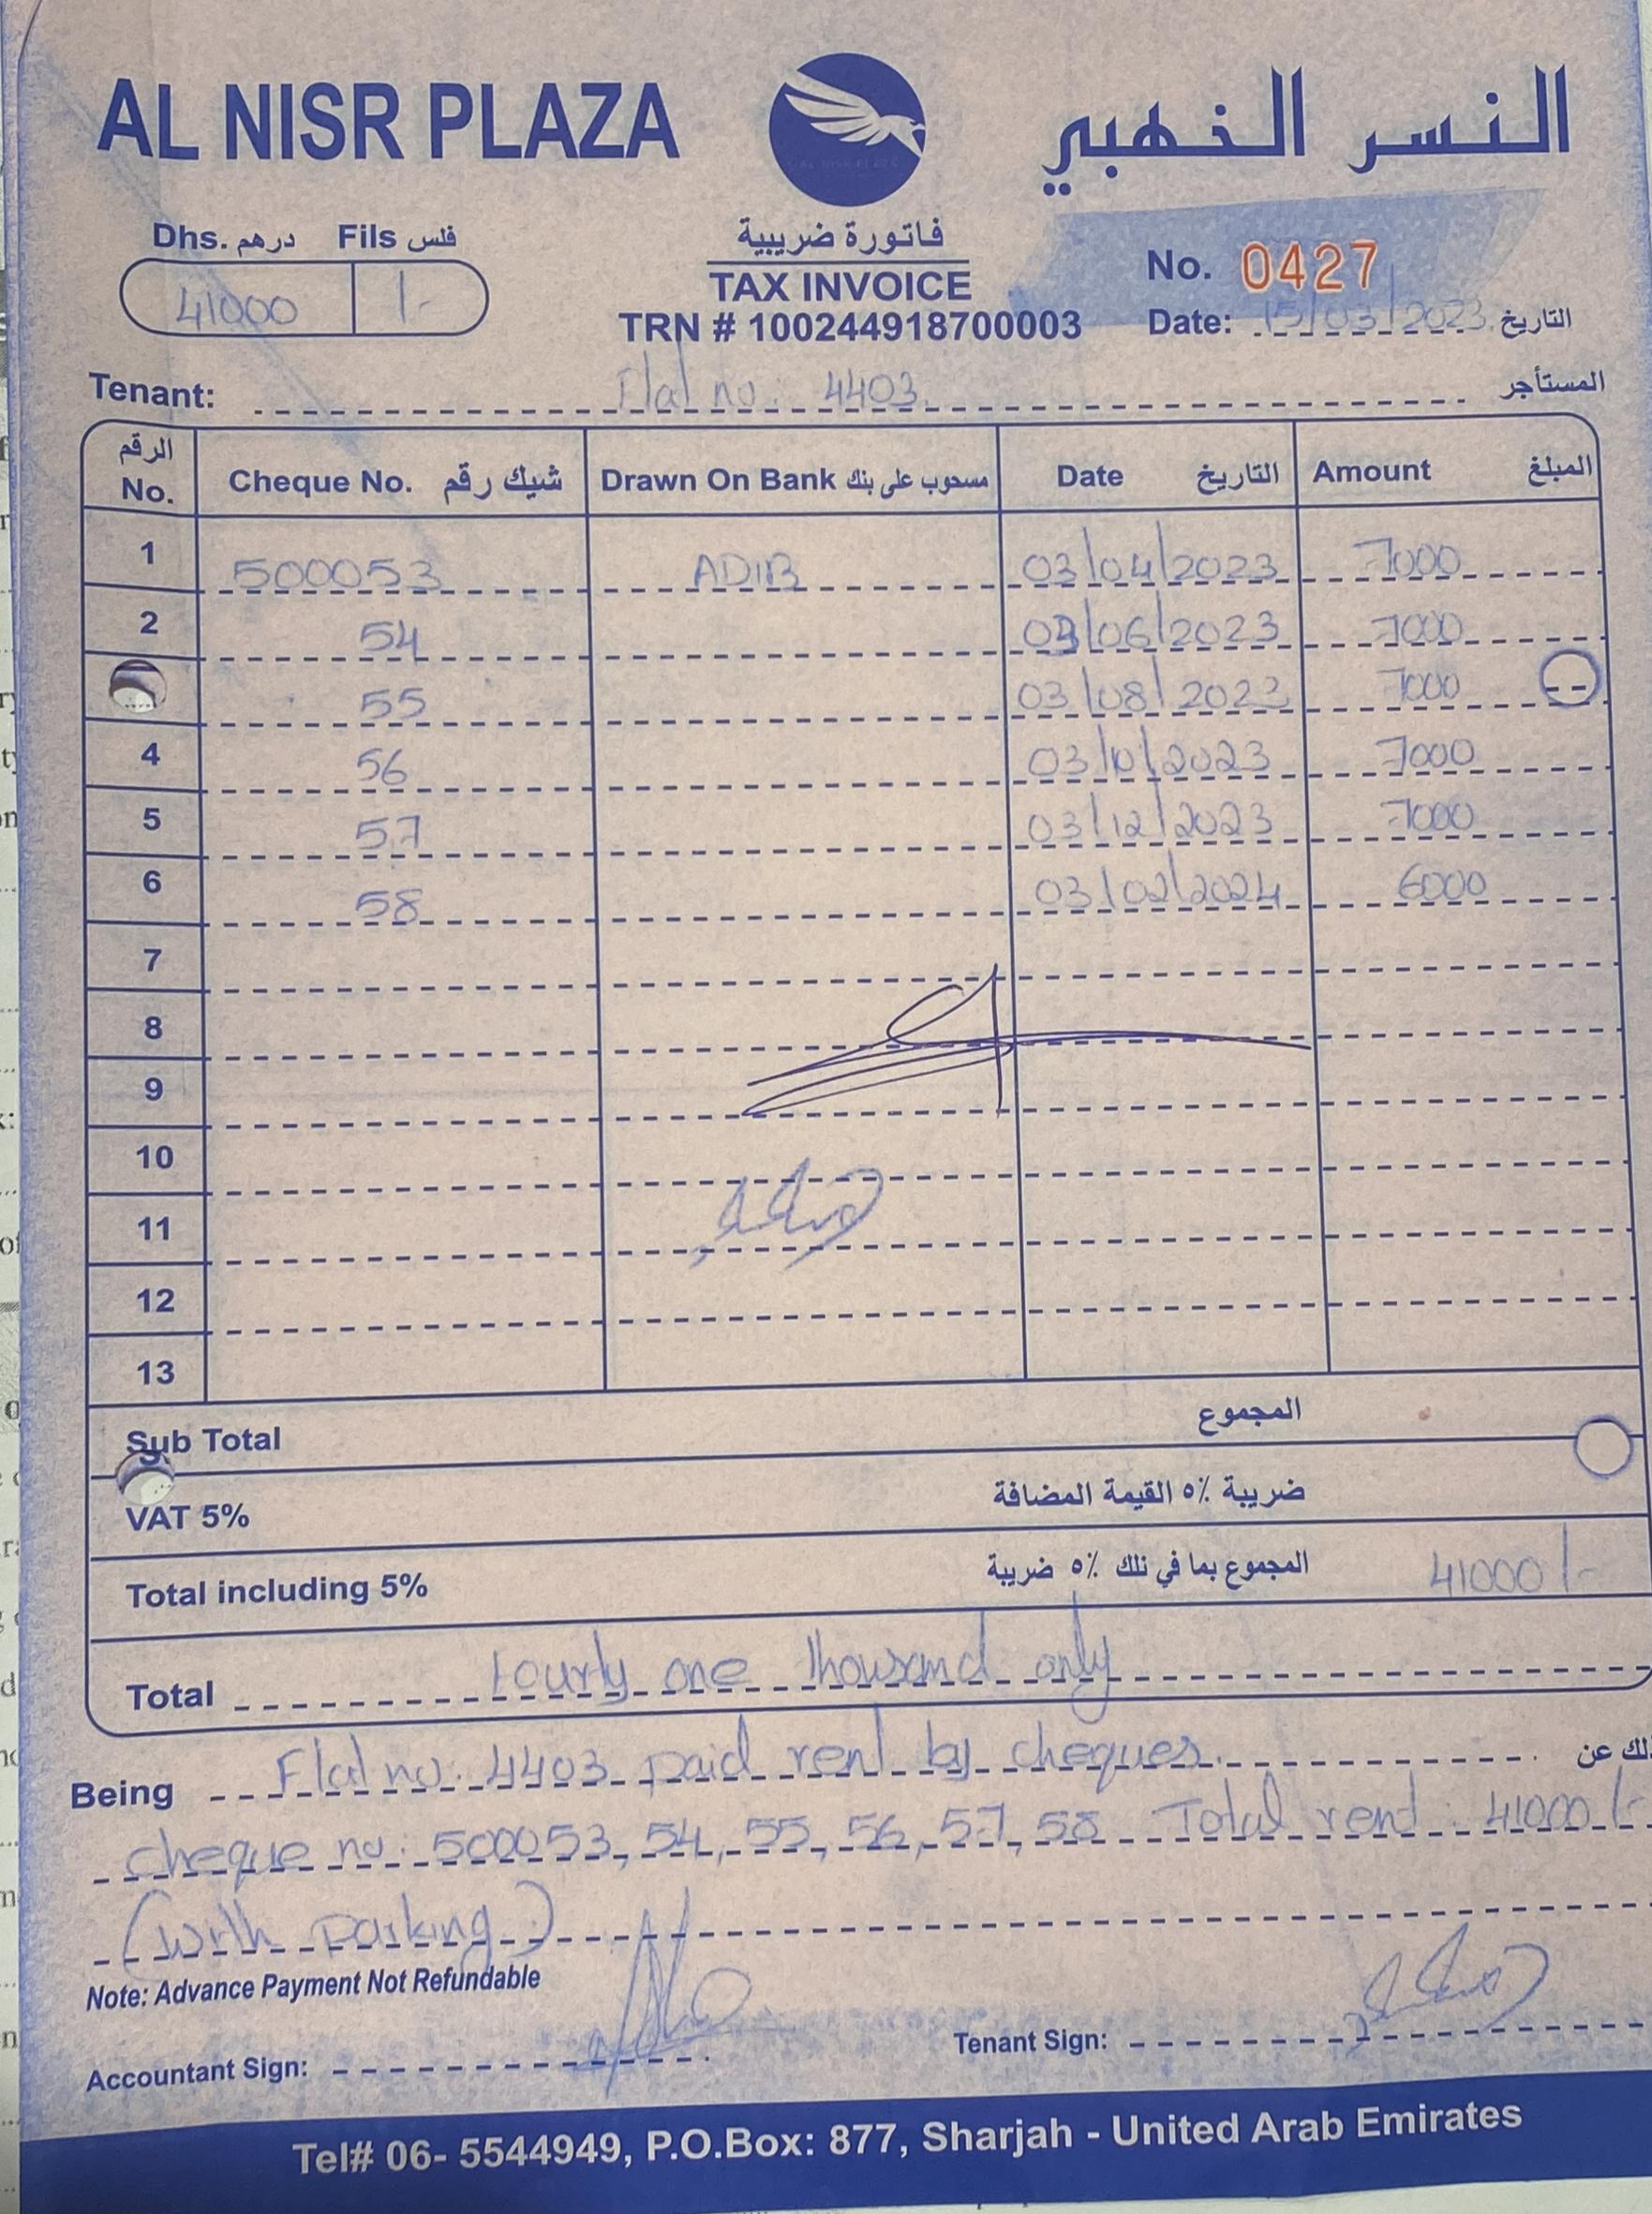 AL NISR PLAZA
النسر الذهبي
Dhs. درهم Fils فلس
41000 /-
فاتورة ضريبية
TAX INVOICE
TRN # 100244918700003
No. 0427
Date: 15/03/2023 التاريخ
Tenant: Flat no: 4403 المستأجر
الرقم No. Cheque No. شيك رقم Drawn On Bank مسحوب على بنك Date التاريخ Amount المبلغ
1 500053 ADIB 03/04/2023 7000
2 54 03/06/2023 7000
55 03/08/2023 7000
4 56 03/10/2023 7000
5 57 03/12/2023 7000
6 58 03/02/2024 6000
7
8
9
10
11
12
13
Sub Total المجموع
VAT 5% ضريبة ٥٪ القيمة المضافة
Total including 5% المجموع بما في ذلك ٥٪ ضريبة 41000/-
Total Fourty one thousand only
Being Flat no: 4403 paid rent by cheques. لك عن
cheque no: 500053, 54, 55, 56, 57, 58 Total rent: 41000/-
(with parking)
Note: Advance Payment Not Refundable
Accountant Sign: Tenant Sign:
Tel# 06- 5544949, P.O.Box: 877, Sharjah - United Arab Emirates